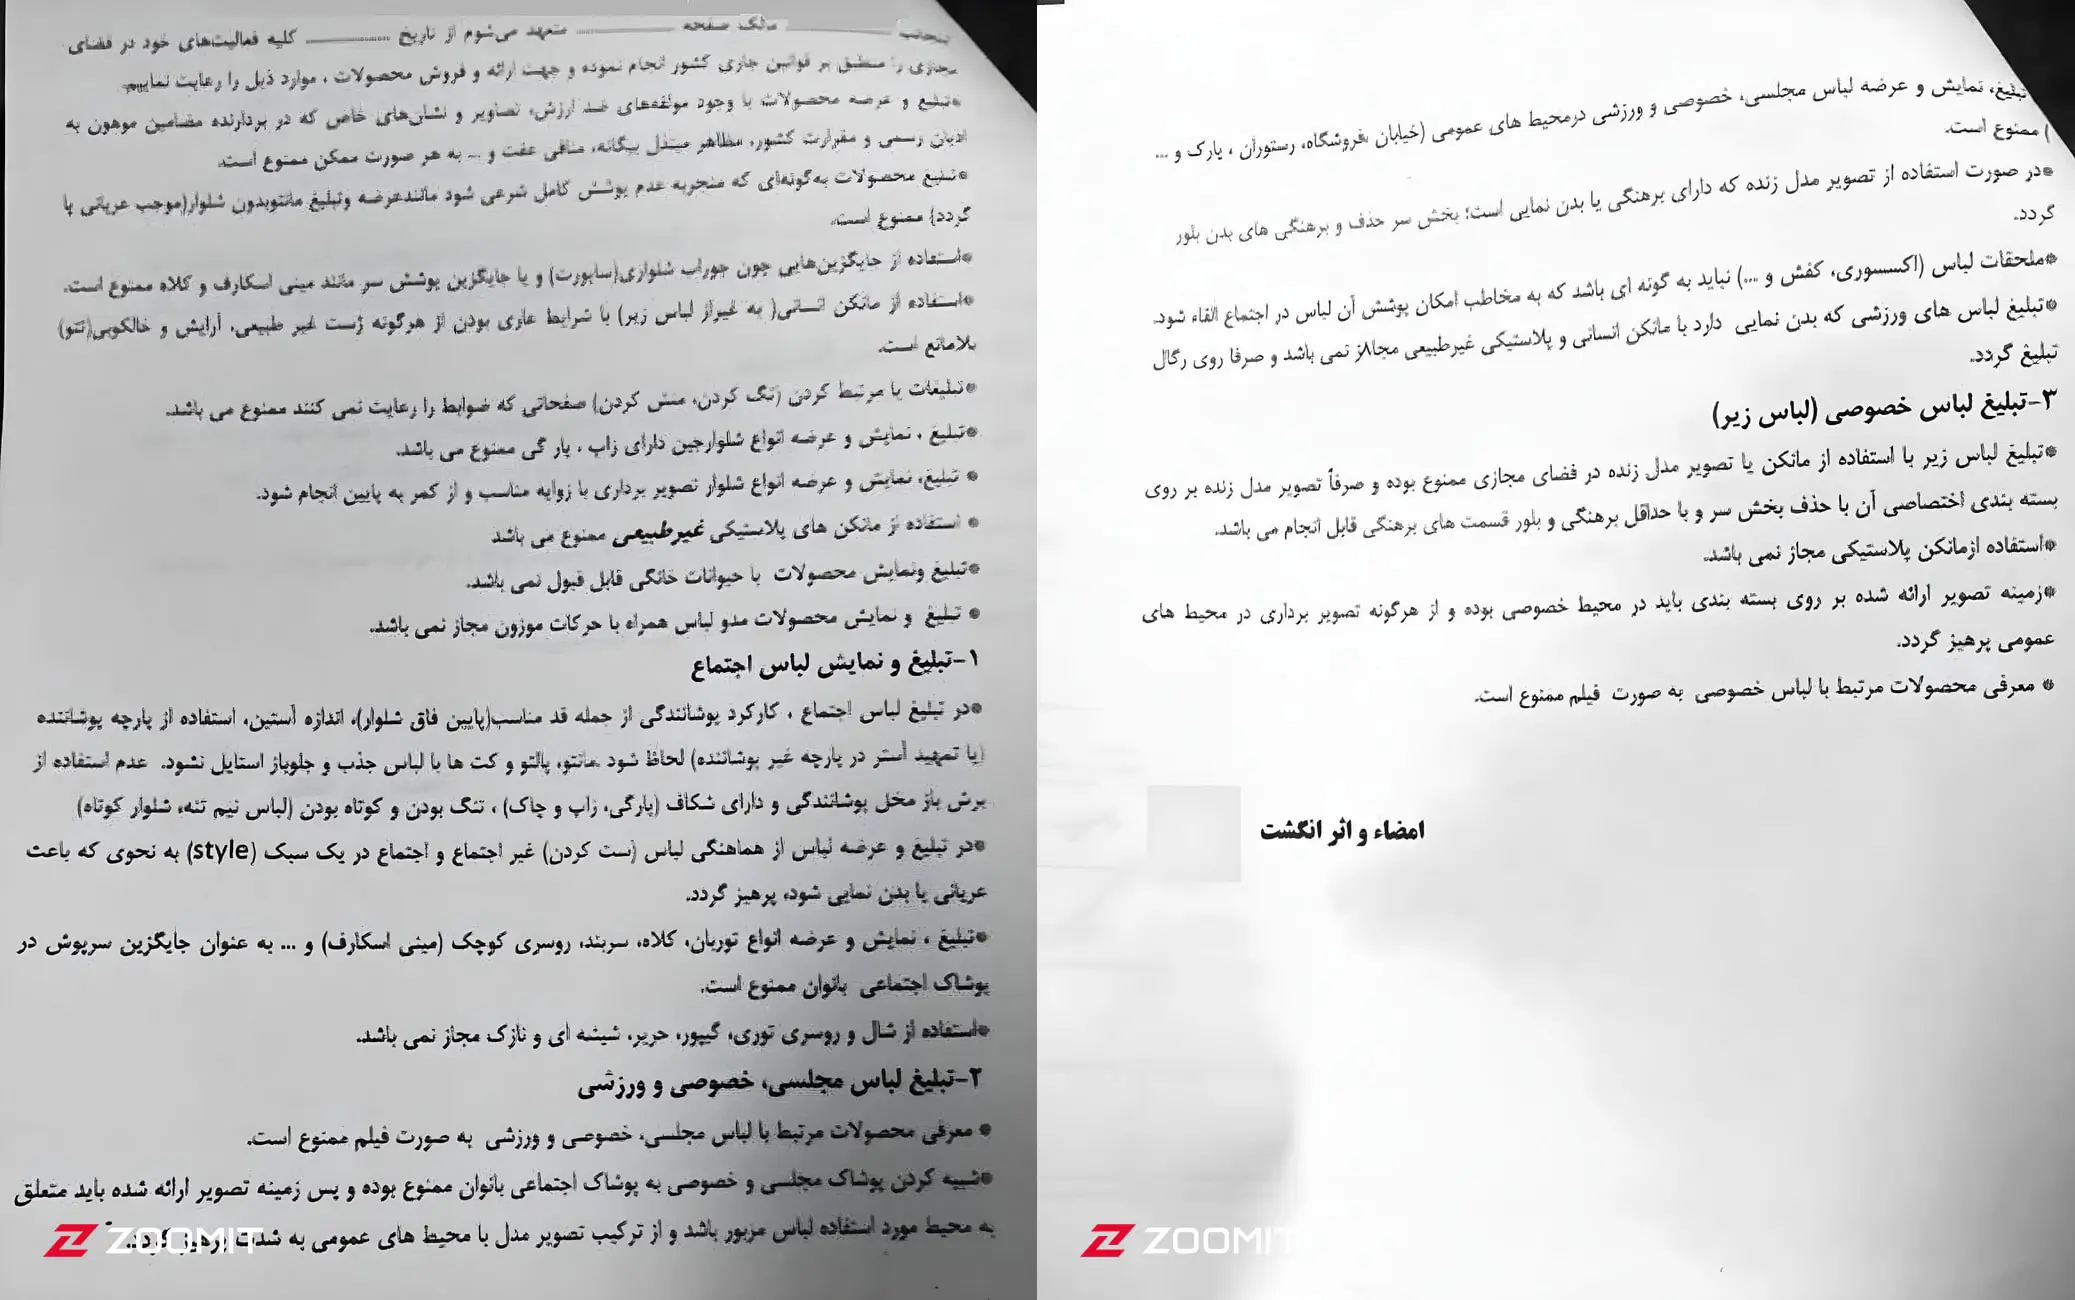 اینجانب ............ مالک صفحه ............ متعهد می‌شوم از تاریخ ............ کلیه فعالیت‌های خود در فضای
مجازی را منطبق بر قوانین جاری کشور انجام نموده و جهت ارائه و فروش محصولات ، موارد ذیل را رعایت نماییم.
*تبلیغ و عرضه محصولات با وجود مولفه‌های ضد ارزش، تصاویر و نشان‌های خاص که در بردارنده مضامین موهون به
ادیان رسمی و مقررات کشور، مظاهر مبتذل بیگانه، منافی عفت و ... به هر صورت ممکن ممنوع است.
*تبلیغ محصولات به‌گونه‌ای که منجربه عدم پوشش کامل شرعی شود مانندعرضه وتبلیغ مانتوبدون شلوار(موجب عریانی پا
گردد) ممنوع است.
*استفاده از جایگزین‌هایی چون جوراب شلواری(ساپورت) و یا جایگزین پوشش سر مانند مینی اسکارف و کلاه ممنوع است.
*استفاده از مانکن انسانی( به غیراز لباس زیر) با شرایط عاری بودن از هرگونه ژست غیر طبیعی، آرایش و خالکوبی(تتو)
بلامانع است.
*تبلیغات یا مرتبط کردن (تگ کردن، منش کردن) صفحاتی که ضوابط را رعایت نمی کنند ممنوع می باشد.
*تبلیغ ، نمایش و عرضه انواع شلوارجین دارای زاپ ، پار گی ممنوع می باشد.
* تبلیغ، نمایش و عرضه انواع شلوار تصویر برداری با زوایه مناسب و از کمر به پایین انجام شود.
* استفاده از مانکن های پلاستیکی غیرطبیعی ممنوع می باشد
*تبلیغ ونمایش محصولات با حیوانات خانگی قابل قبول نمی باشد.
* تبلیغ و نمایش محصولات مدو لباس همراه با حرکات موزون مجاز نمی باشد.
۱-تبلیغ و نمایش لباس اجتماع
*در تبلیغ لباس اجتماع ، کارکرد پوشانندگی از جمله قد مناسب(پایین فاق شلوار)، اندازه آستین، استفاده از پارچه پوشاننده
(یا تمهید آستر در پارچه غیر پوشاننده) لحاظ شود .مانتو، پالتو و کت ها با لباس جذب و جلوباز استایل نشود. عدم استفاده از
برش باز مخل پوشانندگی و دارای شکاف (پارگی، زاپ و چاک) ، تنگ بودن و کوتاه بودن (لباس نیم تنه، شلوار کوتاه)
*در تبلیغ و عرضه لباس از هماهنگی لباس (ست کردن) غیر اجتماع و اجتماع در یک سبک (style) به نحوی که باعث
عریانی یا بدن نمایی شود، پرهیز گردد.
*تبلیغ ، نمایش و عرضه انواع توربان، کلاه، سربند، روسری کوچک (مینی اسکارف) و ... به عنوان جایگزین سرپوش در
پوشاک اجتماعی بانوان ممنوع است.
*استفاده از شال و روسری توری، گیپور، حریر، شیشه ای و نازک مجاز نمی باشد.
۲-تبلیغ لباس مجلسی، خصوصی و ورزشی
* معرفی محصولات مرتبط با لباس مجلسی، خصوصی و ورزشی به صورت فیلم ممنوع است.
*شبیه کردن پوشاک مجلسی و خصوصی به پوشاک اجتماعی بانوان ممنوع بوده و پس زمینه تصویر ارائه شده باید متعلق
به محیط مورد استفاده لباس مزبور باشد و از ترکیب تصویر مدل با محیط های عمومی به شدت پرهیز گردد.
ZOOMIT
تبلیغ، نمایش و عرضه لباس مجلسی، خصوصی و ورزشی درمحیط های عمومی (خیابان ،فروشگاه، رستوران ، پارک و ...
) ممنوع است.
*در صورت استفاده از تصویر مدل زنده که دارای برهنگی یا بدن نمایی است؛ بخش سر حذف و برهنگی های بدن بلور
گردد.
*ملحقات لباس (اکسسوری، کفش و ...) نباید به گونه ای باشد که به مخاطب امکان پوشش آن لباس در اجتماع القاء شود.
*تبلیغ لباس های ورزشی که بدن نمایی دارد با مانکن انسانی و پلاستیکی غیرطبیعی مجاز نمی باشد و صرفا روی رگال
تبلیغ گردد.
۳-تبلیغ لباس خصوصی (لباس زیر)
*تبلیغ لباس زیر با استفاده از مانکن یا تصویر مدل زنده در فضای مجازی ممنوع بوده و صرفاً تصویر مدل زنده بر روی
بسته بندی اختصاصی آن با حذف بخش سر و با حداقل برهنگی و بلور قسمت های برهنگی قابل انجام می باشد.
*استفاده ازمانکن پلاستیکی مجاز نمی باشد.
*زمینه تصویر ارائه شده بر روی بسته بندی باید در محیط خصوصی بوده و از هرگونه تصویر برداری در محیط های
عمومی پرهیز گردد.
* معرفی محصولات مرتبط با لباس خصوصی به صورت فیلم ممنوع است.
امضاء و اثر انگشت
ZOOMIT